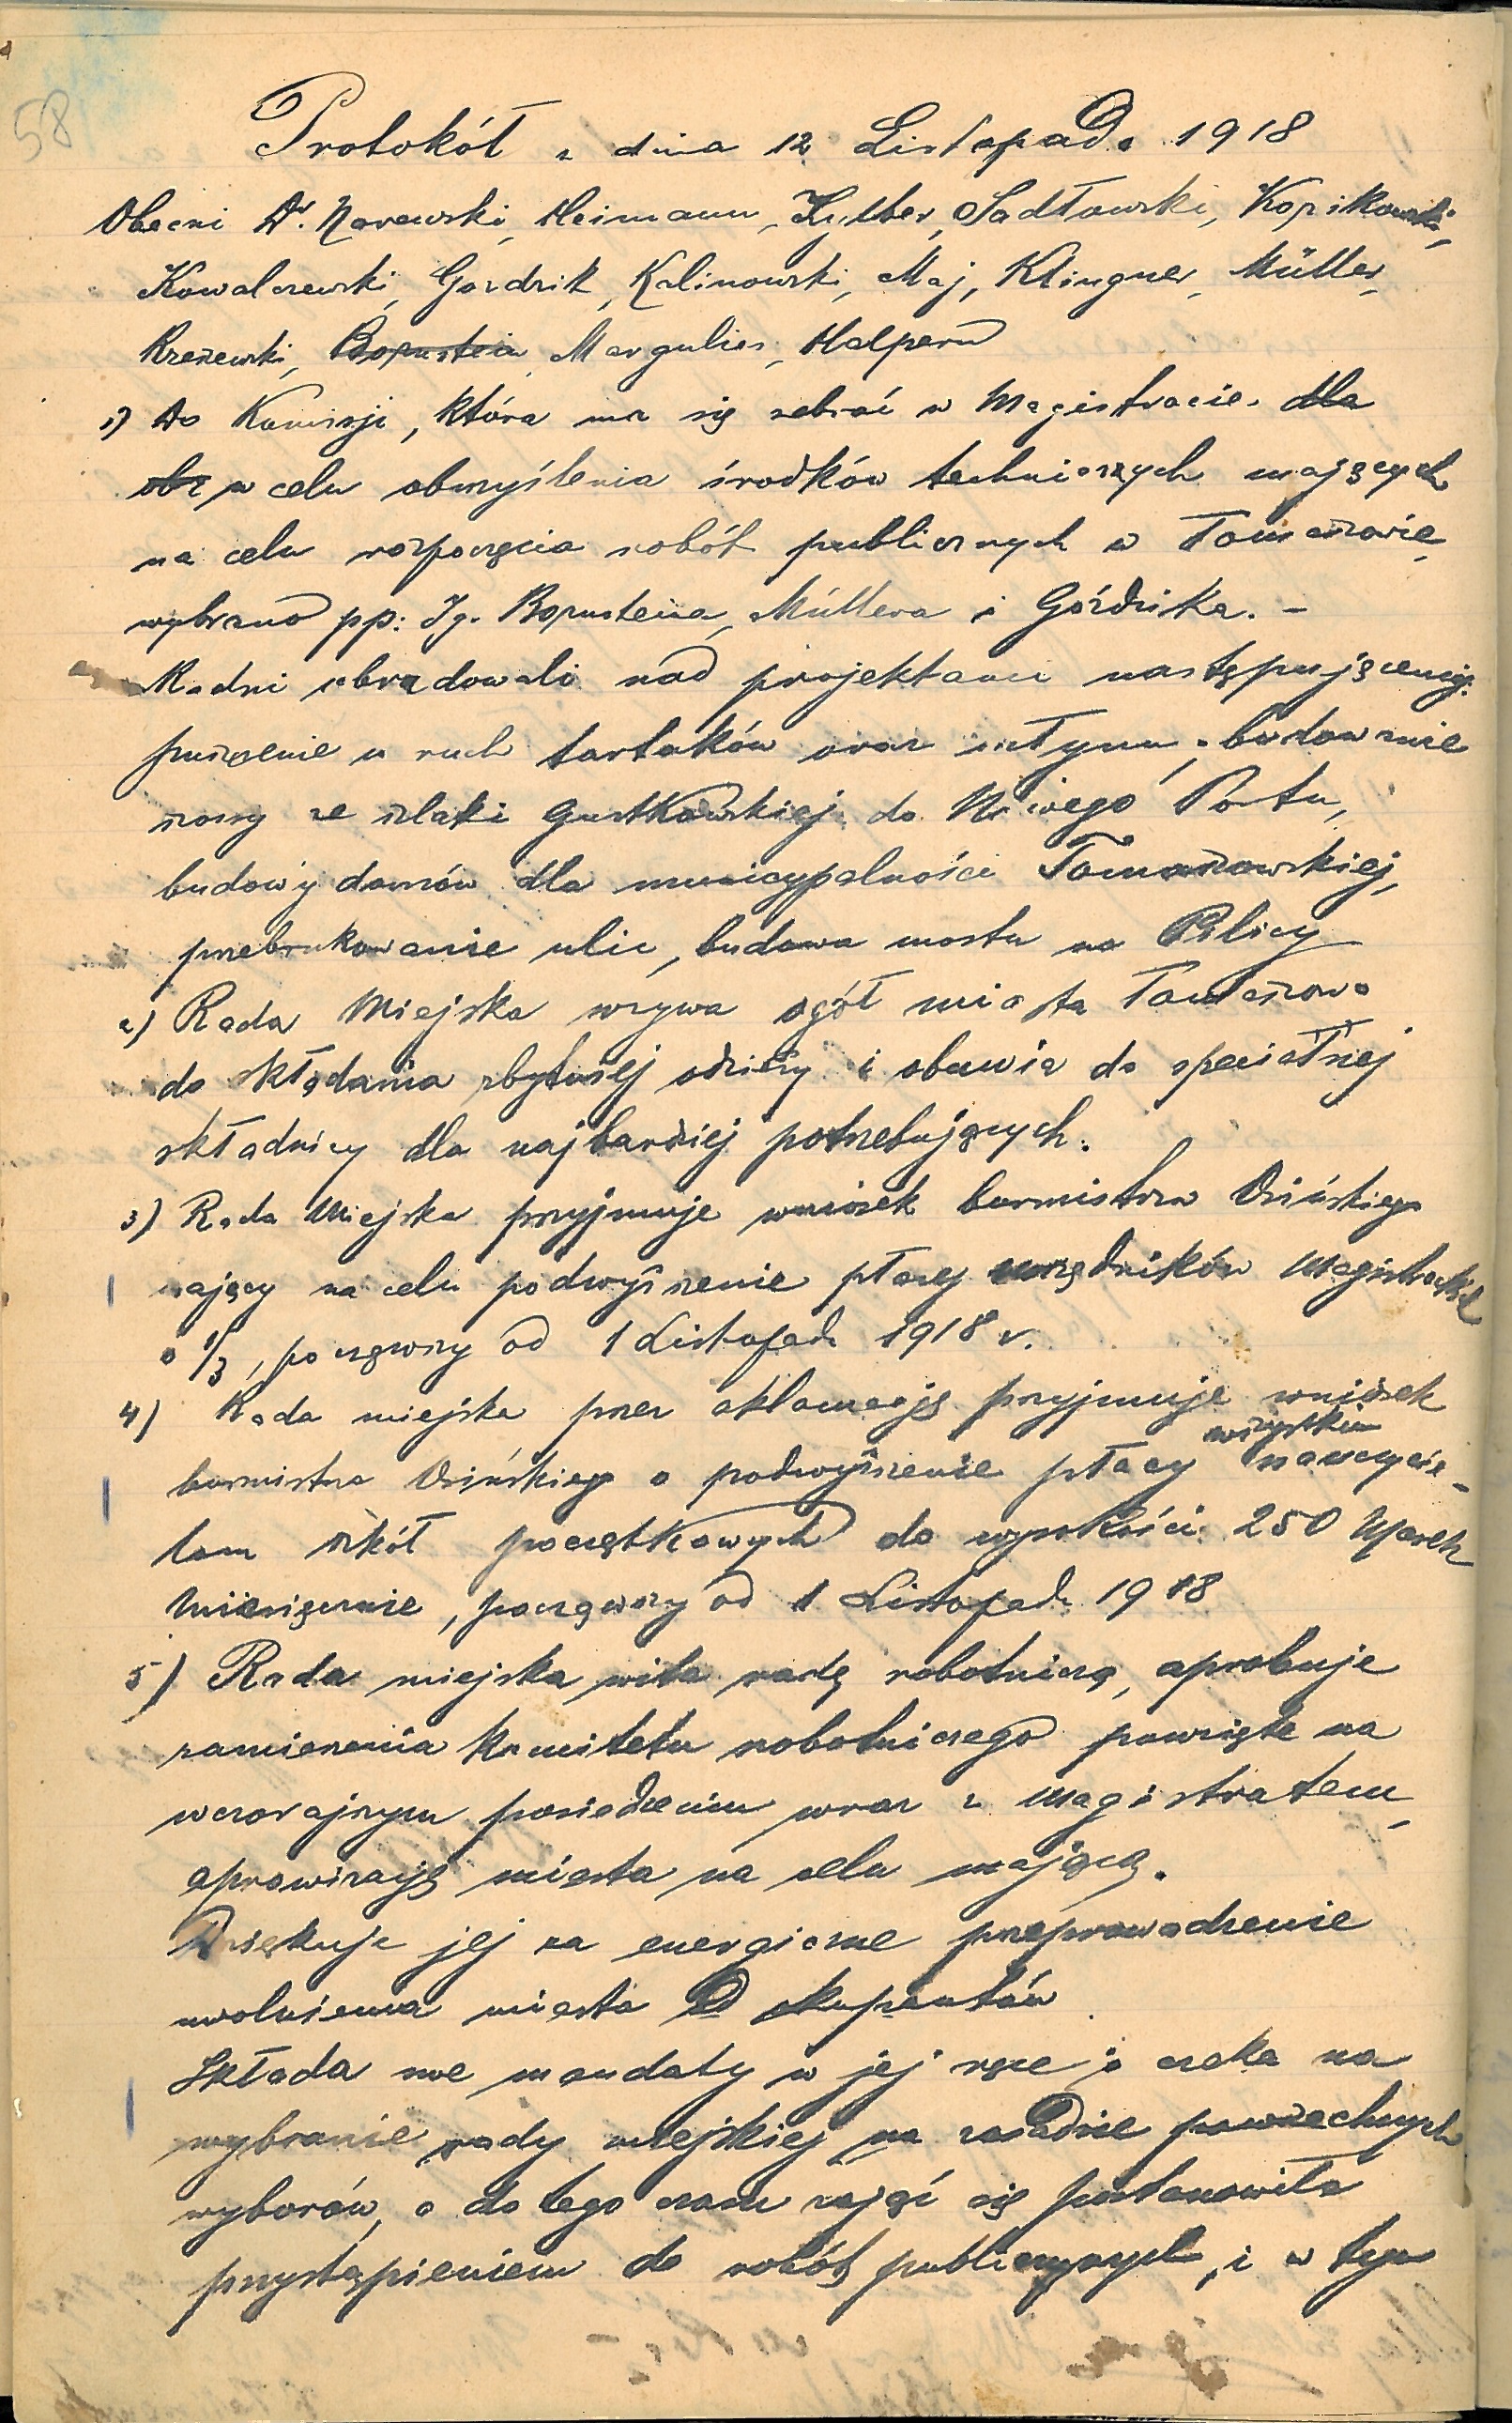 58
Protokół z dnia 12 Listopada 1918
Obecni Dr. Narewski, Heimann, Sadłowski,
Kowalczewski, Gozdzik, Kalinowski, Maj, Klingner, Müller,
Rzezewski, Bornstein, Margulies, Halpern
1) Do Komisji, która ma się zebrać w Magistracie dla
obz w celu obmyślenia środków technicznych mających
na celu rozpoczęcia robót publicznych w Tomaszowie,
wybrano pp: Ig. Bornsteina, Müllera i Góździka. –
Radni obradowali nad projektami następującemi:
puszczenie w ruch tartaków oraz młynu, budowanie
szosy ze szlaki Gustkowskiej do Nowego Portu,
budowy domów dla municypalności Tomaszowskiej,
przebrukowanie ulic, budowa mostu na Pilicy
2) Rada Miejska wzywa ogół miasta Tomaszowa
do składania zbytniej odzieży i obuwia do specialnej
składnicy dla najbardziej potrzebujących.
3) Rada Miejska przyjmuje wniosek burmistrza Osińskiego
mający na celu podwyższenie płacy urzędników Magistrackich
o 1/3, począwszy od 1 Listopada 1918 r.
4) Rada miejska przez aklamację przyjmuje wniosek
wszystkim
burmistrza Osińskiego o podwyższenie płacy nauczycie-
lom szkół początkowych do wysokości 250 Marek
miesięcznie, począwszy od 1 Listopada 1918
5) Rada miejska wita radę robotniczą, aprobuje
zamierzenia komitetu robotniczego powzięte na
wczorajszym posiedzeniu wraz z magistratem,
aprowizację miasta na celu mającą.
Dziękuje jej za energiczne przeprowadzenie
uwolnienia miasta od okupantów
Składa swe mandaty w jej ręce i czeka na
wybranie rady miejskiej na zasadzie powszechnych
wyborów, a do tego czasu zająć się postanowiła
przystąpieniem do robót publicznych, i w tym